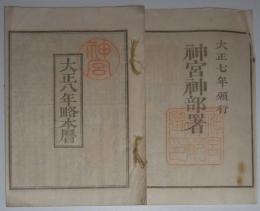 大正七年頒行
神宮神部署
神宮
大正八年略本暦